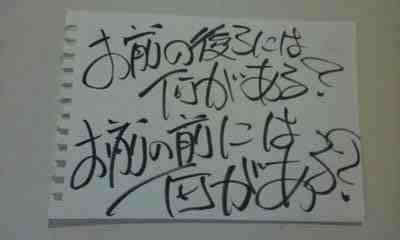 お前の後ろには
何がある?
お前の前には
何がある?